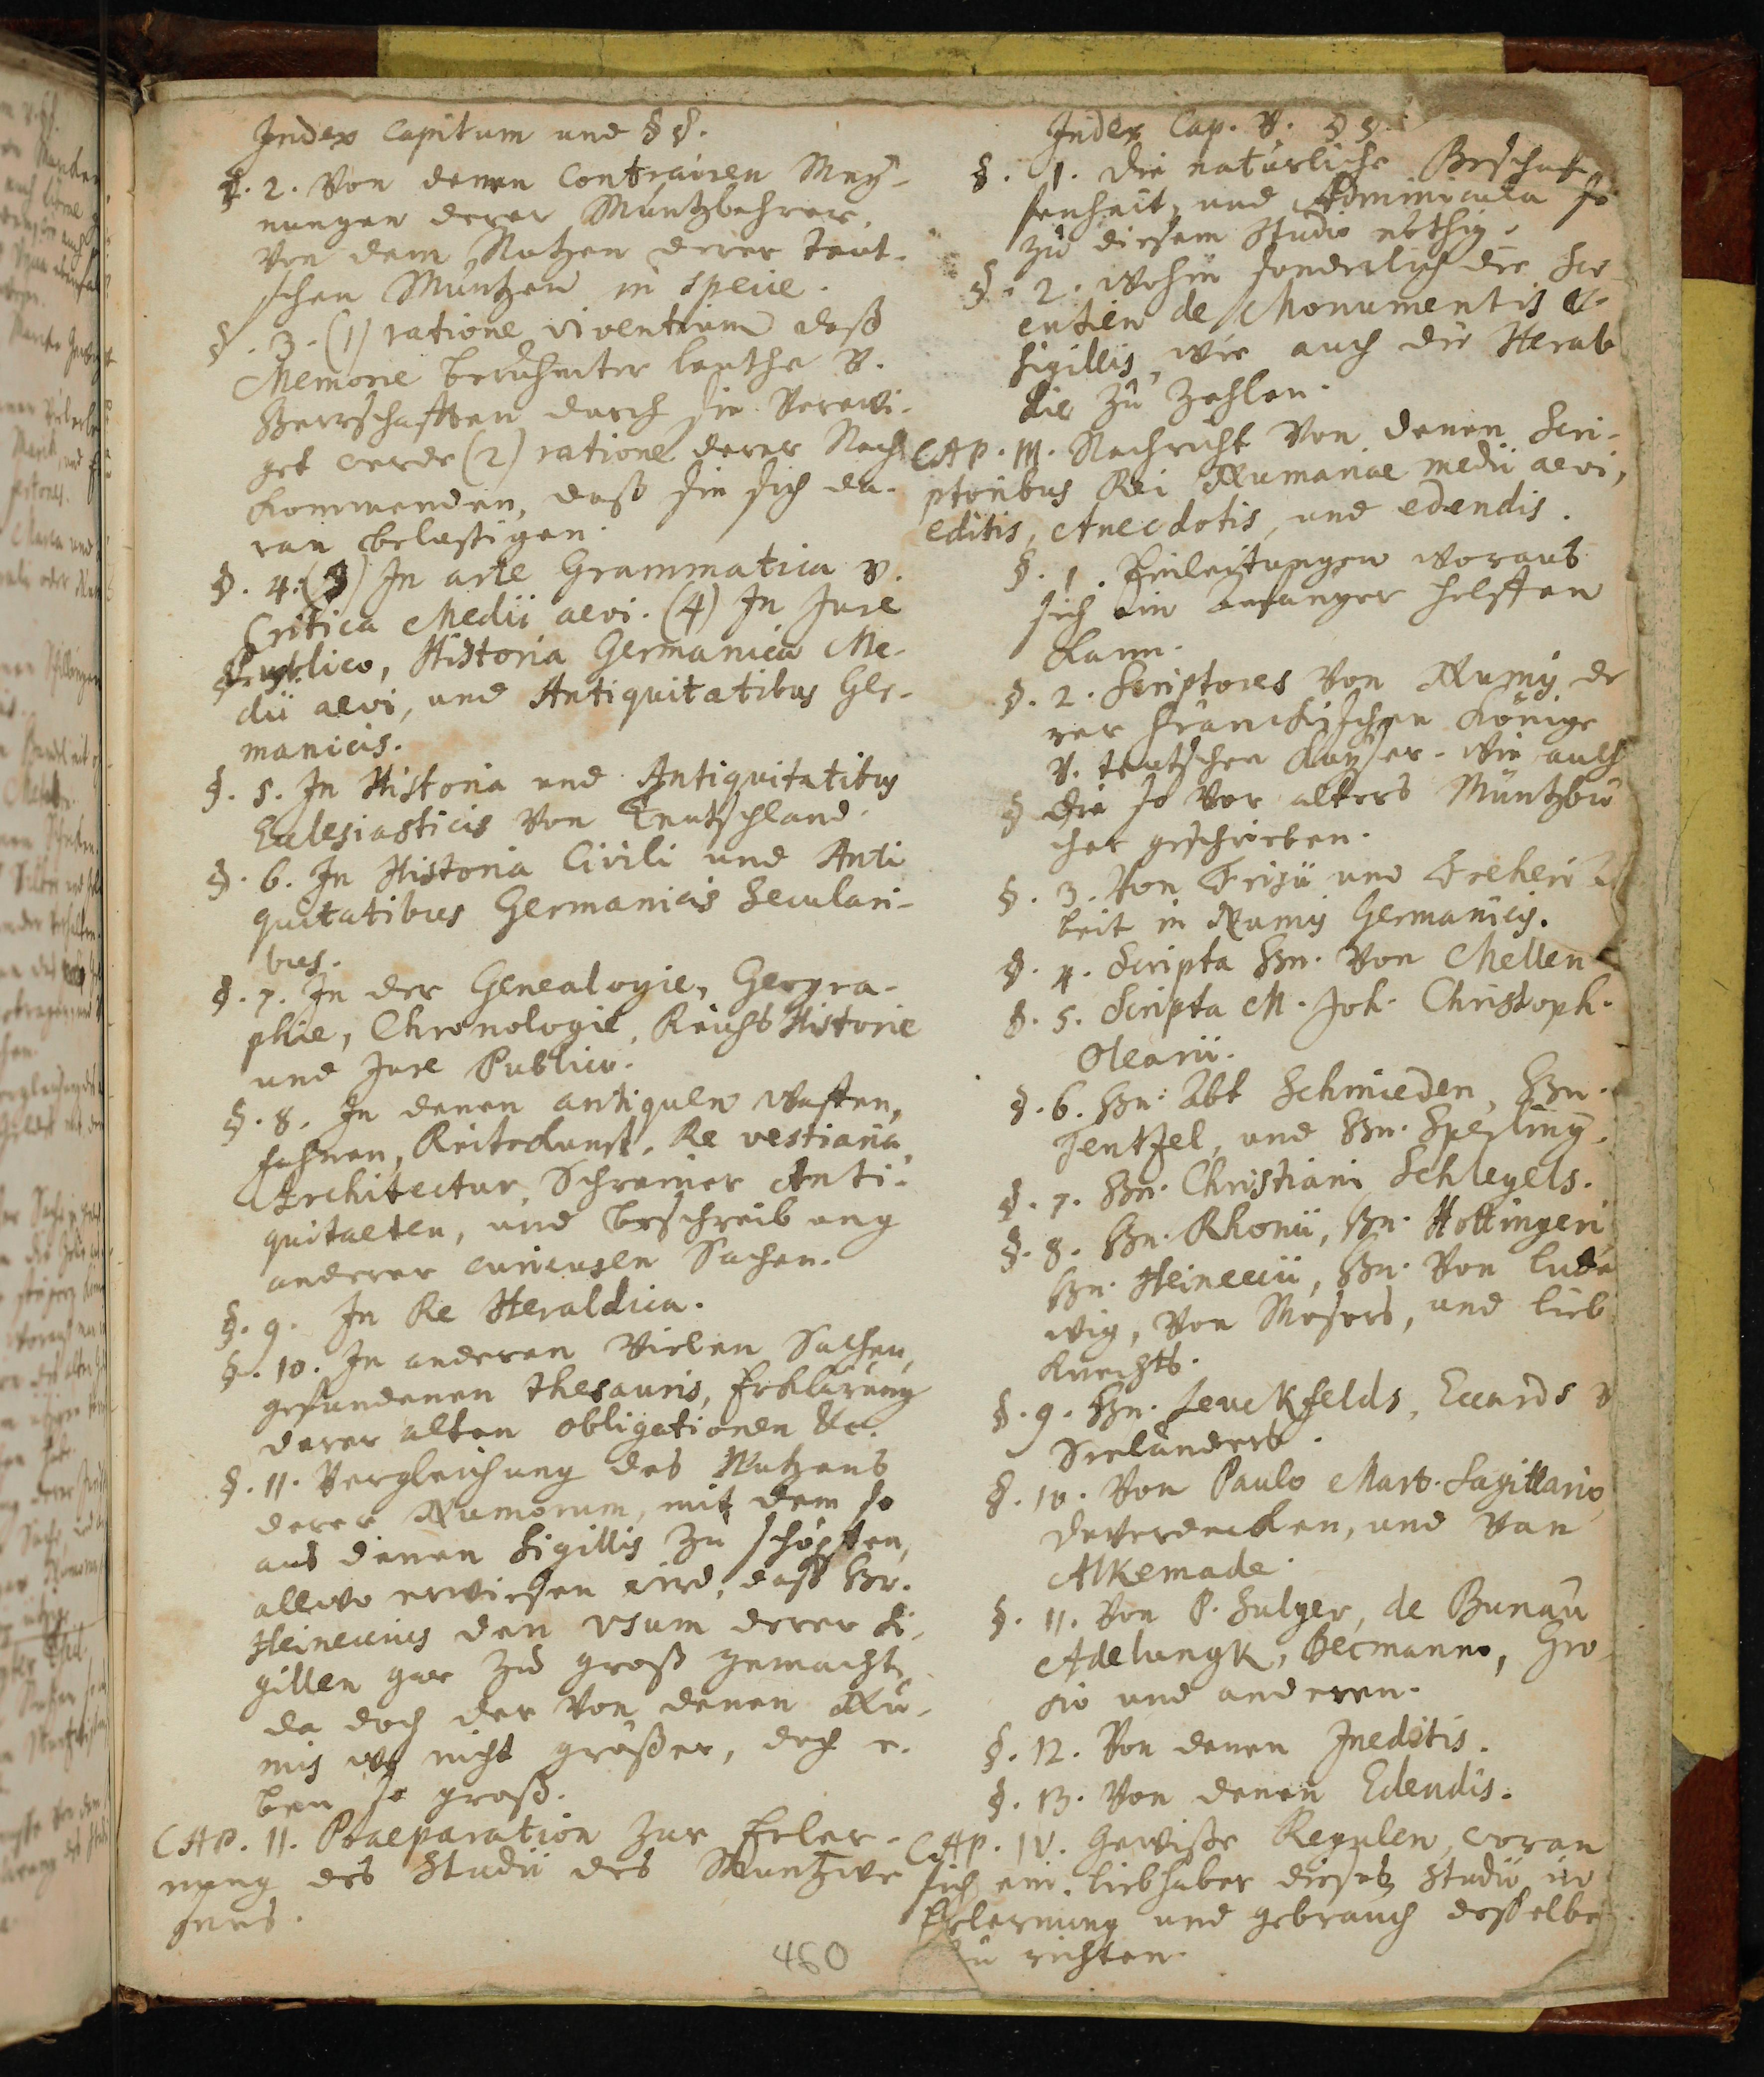 Index Capitum und §§.
§. 2. Von denen Contrairen Mey-
nungen derer Müntzlehrer,
von dem Nutzen derer teut-
schen Müntzen in specie.
§. 3. (1) ratione viventium daß
Memorie berühmter leuthe v.
Herrschafften durch sie verewi-
get werde (2) ratione derer Nach
kommenden, daß sie sich da-
ran belustigen.
§. 4. (3) In arte Grammatica v.
Critica Medii aevi. (4) In Jure
Publico, Historia Germanica Me-
dii aevi, und Antiquitatibus Ger-
manicis.
§. 5. In Historia und Antiquitatibus
Ecclesiasticis von Teutschland.
§. 6. In Historia Civili und Anti
quitatibus Germanicis Seculari-
bus.
§. 7. In der Genealogie, Geogra-
phie, Chronologie, Reichs Historie
und Jure Publico.
§. 8. In denen antiquen Waffen,
fahnen, Reitekunst, Re vestiaria,
Architectur, Schreiner Anti-
quitaeten, und beschreibung
anderer curieusen Sachen.
§. 9. In Re Heraldica.
§. 10. In anderen vielen Sachen,
gefundenen thesauris, Erklärung
derer alten obligationen &c.
§. 11. Vergleichung des Nutzens
derer Numorum, mit dem so
aus denen Sigillis zu schöpffen,
allwo erwiesen wird, daß Hr.
Heineccius den Usum derer Si-
gillen gar zu groß gemacht,
da doch der von denen Nu-
mis wo nicht größer, doch e-
ben so groß.
CAP. II. Praeparation zur Erler-
nung des Studii des Müntzwe
sens.
460
Index Cap. v. §§.
§. 1. die natürliche Beschaf-
fenheit, und Adminicula so
zu diesem Studio nöthig.
§. 2. wohin sonderlich die Sci-
entien de Monumentis &
Sigillis, wie auch die Heral
dic zu zehlen.
CAP. III. Nachricht von denen Scri-
ptoribus Rei Numariae medii aevi,
editis, Anecdotis, und edendis.
§. 1. Einleitungen woraus
sich ein anfänger helffen
kann.
§. 2. Scriptores von Numis de
rer fränckischen Könige
v. teutschen Kayser. wie auch
§ die so vor alters Müntzbü
cher geschrieben.
§. 3. Von Frisii und Freheri Ar
beit in Numis Germanicis.
§. 4. Scripta Hn. von Mellen
§. 5. Scripta M. Joh. Christoph.
Olearii.
§. 6. Hn. Abt Schmieden, Hn.
Tentzel, und Hn. Sperling.
§. 7. Hn. Christiani Schlegels.
§. 8. Hn. Rhonii, Hn. Hottingeri
Hn. Heineccii, Hn. von Lude
wig, von Mosers, und lieb
knechts.
§. 9. Hn. Leuckfelds, Eccards v
Seeländers.
§. 10. Von Paulo Mart. Sagittario,
deverdecken, und van
Alkemade.
§. 11. Von P. Sulger, de Bunau
Adelungk, Becmanno, Gro
sio und anderen.
§. 12. Von denen Ineditis.
§. 13. Von denen Edendis.
CAP. IV. Gewisse Regulen, woran
sich ein liebhaber dieses Studii in
Erlernung und gebrauch desselben
zu richten.